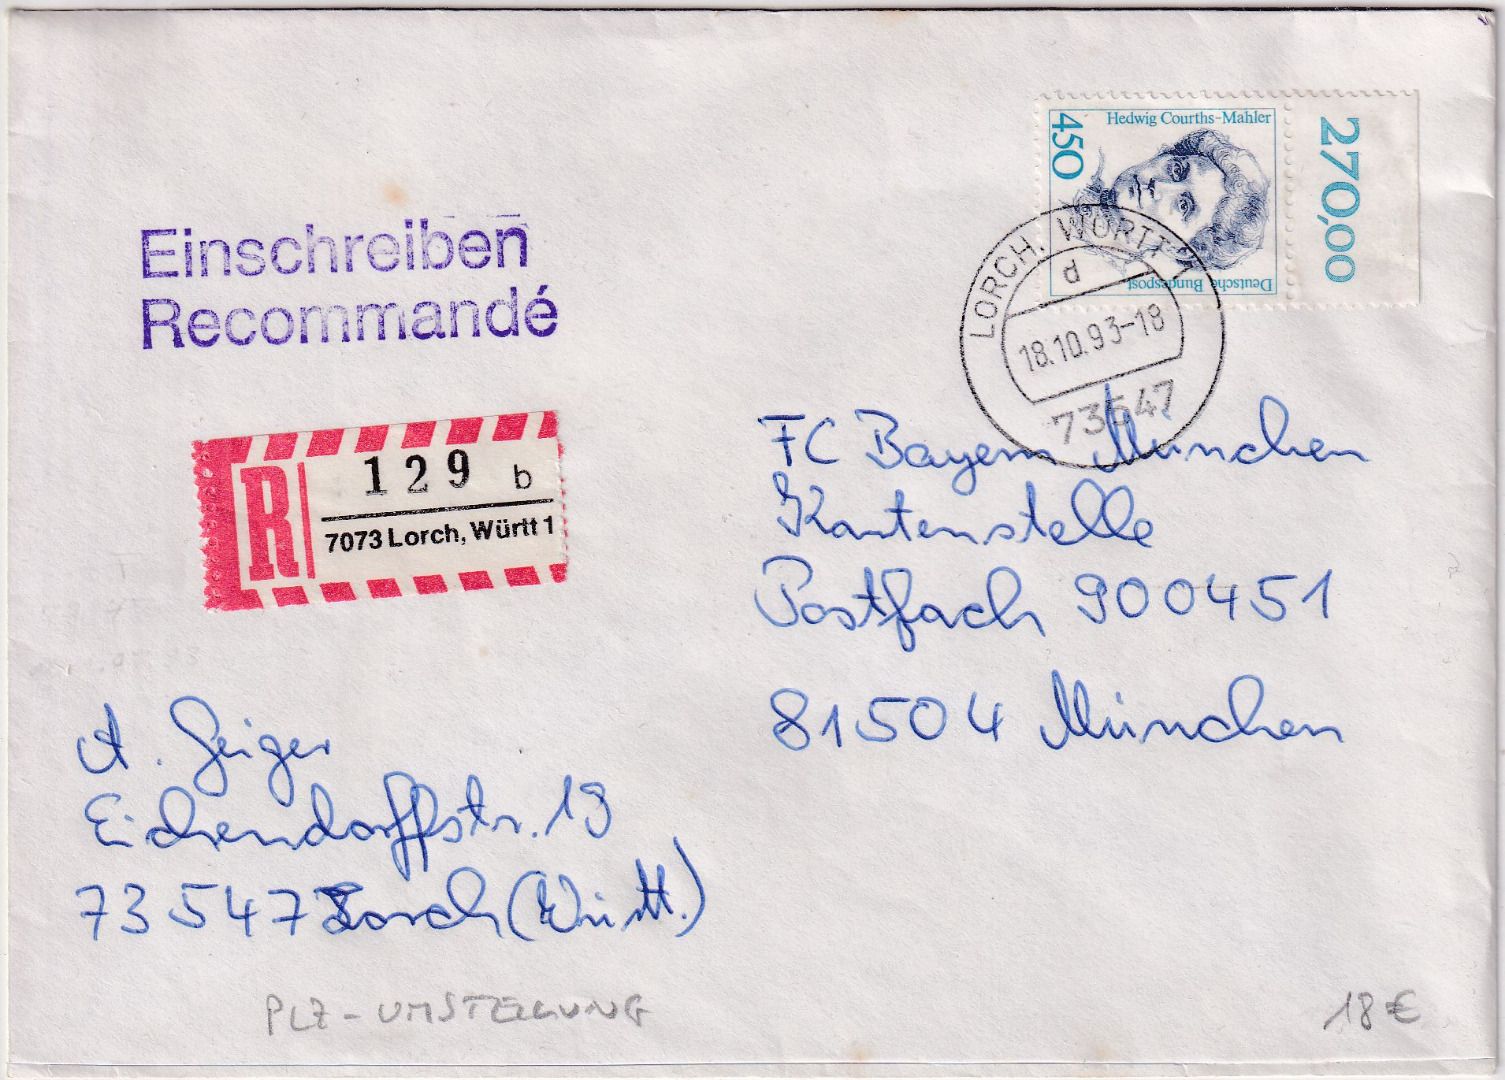 Einschreiben
Recommandé
450
Hedwig Courths-Mahler
Deutsche Bundespost
270,00
LORCH, WÜRTT
d
18.10.93-18
73547
R
129 b
7073 Lorch, Württ 1
FC Bayern München
Kartenstelle
Postfach 900451
81504 München
A. Geiger
Eichendorffstr. 19
73547 Lorch (Württ.)
PLZ-UMSTELLUNG
18 €